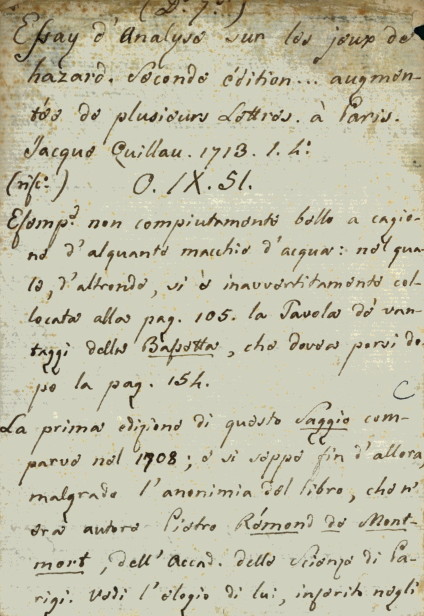 Essay d'Analyse sur les jeux de
hazard. Seconde édition... augmen-
tée de plusieurs Lettres. à Paris.
Jacque Quillau. 1713. 1. 4.º
O. IX. 51.
Esemp.e non compiutamente bello a cagio-
ne d'alquante macchie d'acqua: nel qua-
le, d'altronde, si è inavvertitamente col-
locata alla pag. 105. la Tavola de' van-
taggi della Bassetta, che dovea porsi do-
po la pag. 154.
La prima edizione di questo Saggio com-
parve nel 1708; e si seppe fin d'allora,
malgrado l'anonimia del libro, che n'
era autore Pietro Rémond de Mont-
mort, dell'Accad. delle Scienze di Pa-
rigi. Vedi l'elogio di lui, inserito negli